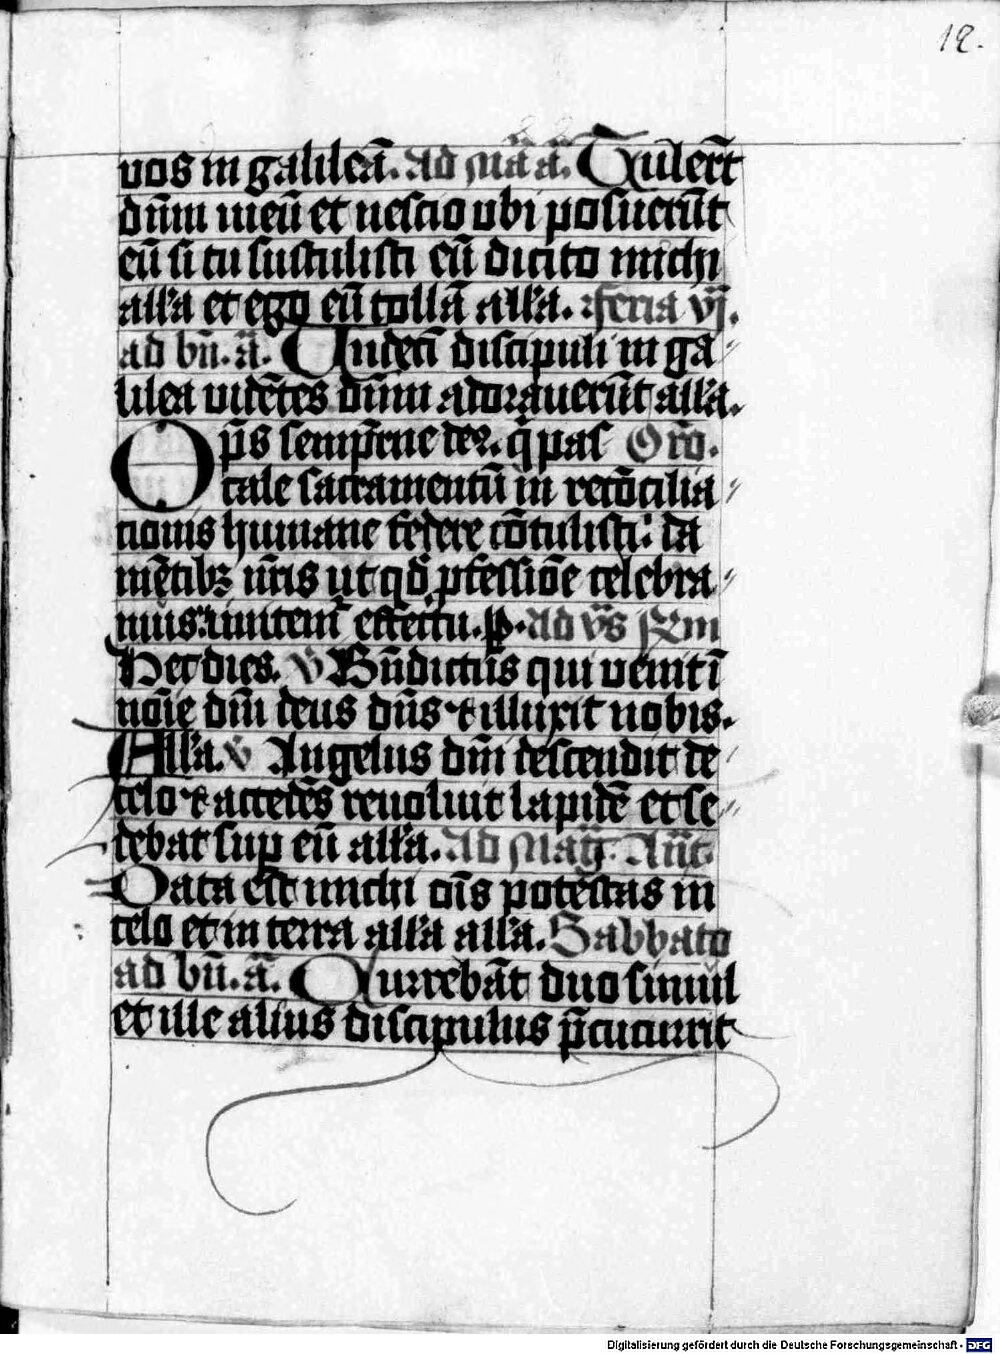 12.
vos in galileā. Ad mā ā. Tulerūt
dn̄m meū et nescio ubi posuerūt
eū si tu sustulisti eū dicito michi
all'a et ego eū tollā all'a. Feria vj.
ad bn̄. ā. Undeci discipuli in ga
lilea vidētes dn̄m adorauerūt all'a.
Op̄s sempit̄ne de9. q̄ pas Orō.
cale sacramentū in recōcilia
tionis humane federe cōtulisti: da
mētibꝫ nr̄is ut qd̄ ꝓfessiōe celebra
mus: imitem̄ effectu. P. Ad vs̄
Hec dies. V Bn̄dictus qui venit ī
noīe dn̄i deus dn̄s ⁊ illuxit nobis.
All'a. V Angelus dn̄i descendit de
celo ⁊ accedēs reuoluit lapidē et se
debat sup eū all'a. Ad Maḡ. Ant̄.
Data est michi oīs potestas in
celo et in terra all'a all'a. Sabbato
ad bn̄. ā. Currebāt duo simul
et ille alius discipulus p̄cucurrit
Digitalisierung gefördert durch die Deutsche Forschungsgemeinschaft - DFG